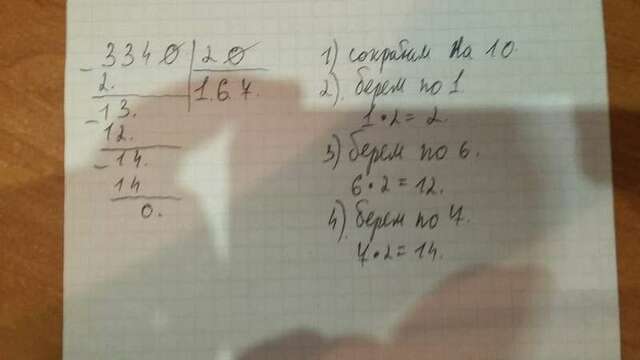 3340 | 20
- 2. | 1.6.7.
- 13.
12.
- 14.
14
0.
1) сократим на 10.
2) берем по 1.
1·2=2.
3) берем по 6.
6·2=12.
4) берем по 7.
7·2=14.